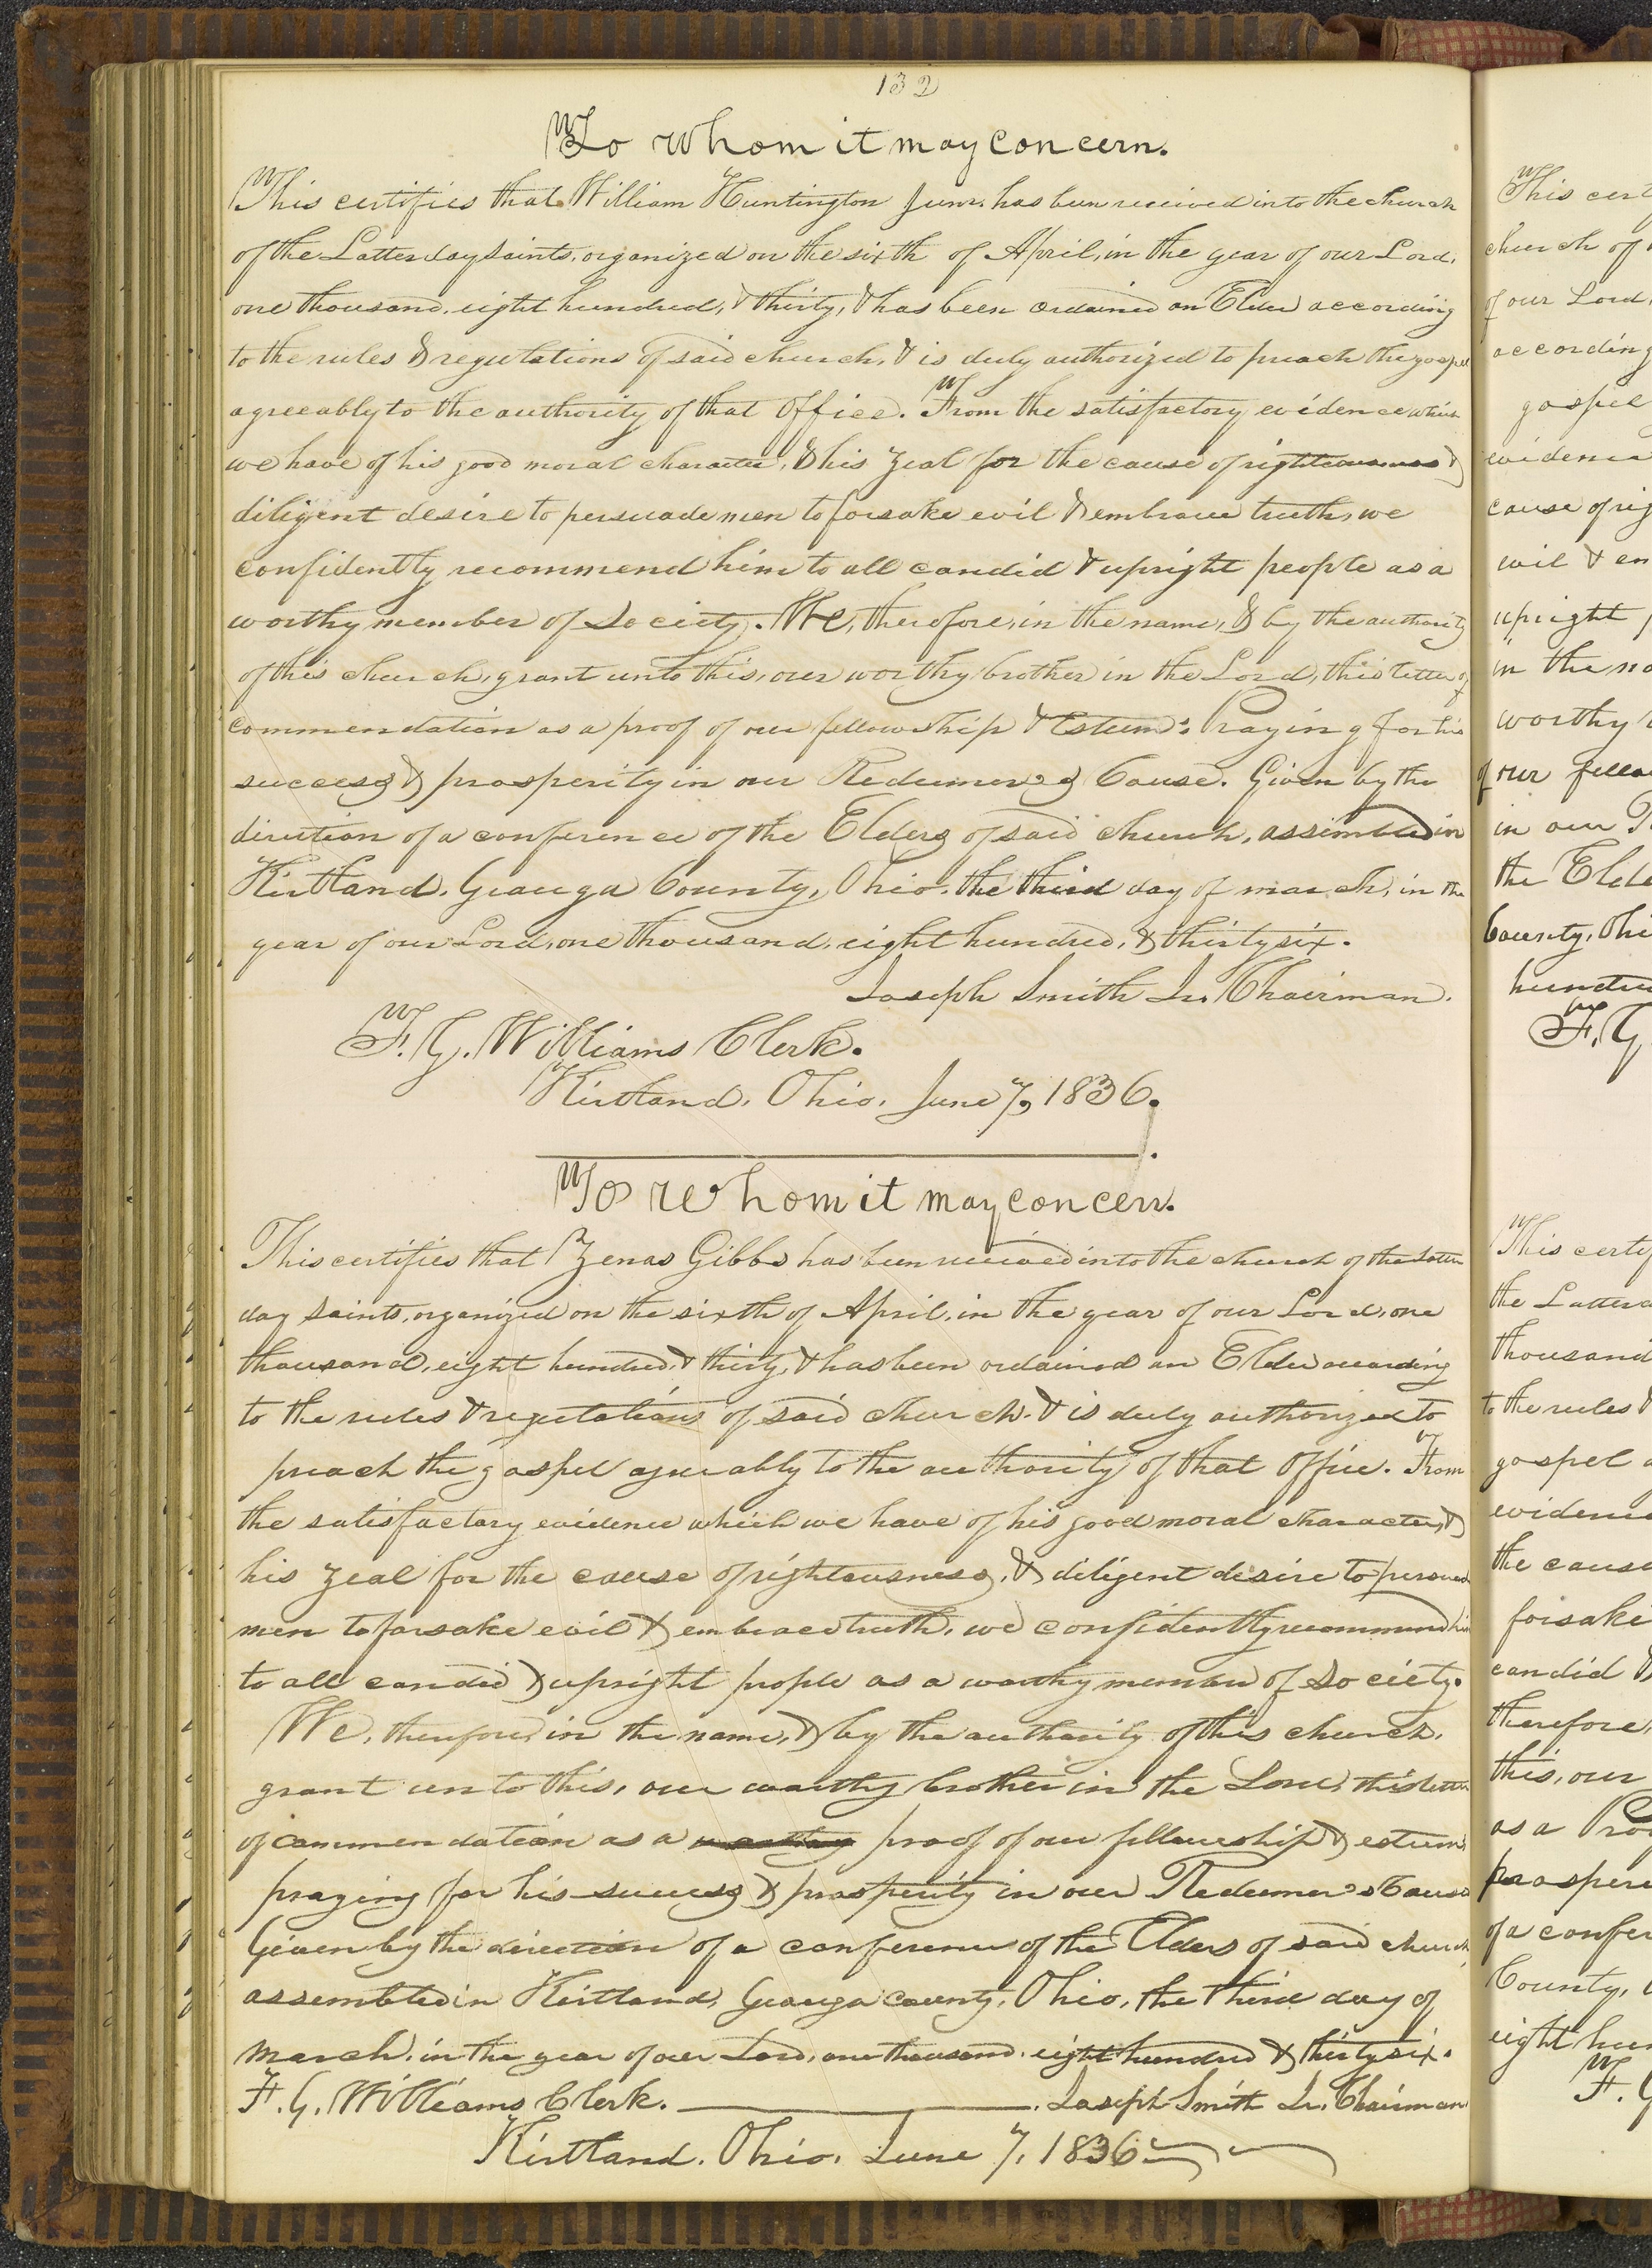 132
To whom it may concern.
This certifies that William Huntington Junr. has been received into the church
of the Latter day saints, organized on the sixth of April, in the year of our Lord,
one thousand, eight hundred, & thirty, & has been ordained an Elder according
to the rules & regulations of said church, & is duly authorized to preach the gospel
agreeably to the authority of that office. From the satisfactory evidence which
we have of his good moral character, & his zeal for the cause of righteousness &
diligent desire to persuade men to forsake evil & embrace truth, we
confidently recommend him to all candid & upright people as a
worthy member of Society. We, therefore, in the name, & by the authority
of this church, grant unto this, our worthy brother in the Lord, this letter of
commendation as a proof of our fellowship & Esteem: Praying for his
success & prosperity in our Redeemer's Cause. Given by the
direction of a conference of the Elders of said church, assembled in
Kirtland, Geauga County, Ohio, the third day of march, in the
year of our Lord, one thousand, eight hundred, & thirty six.
Joseph Smith Jr. Chairman.
F. G. Williams Clerk.
Kirtland, Ohio, June 7, 1836.
To whom it may concern.
This certifies that Zenas Gibbs has been received into the church of the Latter
day saints, organized on the sixth of April, in the year of our Lord, one
thousand, eight hundred, & thirty, & has been ordained an Elder according
to the rules & regulations of said church. & is duly authorized to
preach the gospel agreeably to the authority of that office. From
the satisfactory evidence which we have of his good moral character, &
his zeal for the cause of righteousness, & diligent desire to persuade
men to forsake evil & embrace truth, we confidently recommend him
to all candid & upright people as a worthy member of Society.
We, therefore, in the name, & by the authority of this church,
grant unto this, our worthy brother in the Lord, this letter
of commendation as a worthy proof of our fellowship & esteem,
praying for his success & prosperity in our Redeemer's Cause
Given by the direction of a conference of the Elders of said church,
assembled in Kirtland, Geauga County, Ohio, the third day of
March, in the year of our Lord, one thousand, eight hundred & thirty six.
F. G. Williams Clerk. Joseph Smith Jr. Chairman
Kirtland, Ohio, June 7, 1836
This cert
church of
of our Lord,
according
gospel
evidence
cause of rig
evil & em
upright
in the na
worthy
of our fello
in our
the Elde
County, Ohi
hundre
F. G
This certi
the Latter
thousand
to the rules &
gospel
evidence
the cause
forsake
candid &
therefore,
this, our
as a Proo
prosperi
of a confer
County,
eight hun
F. G